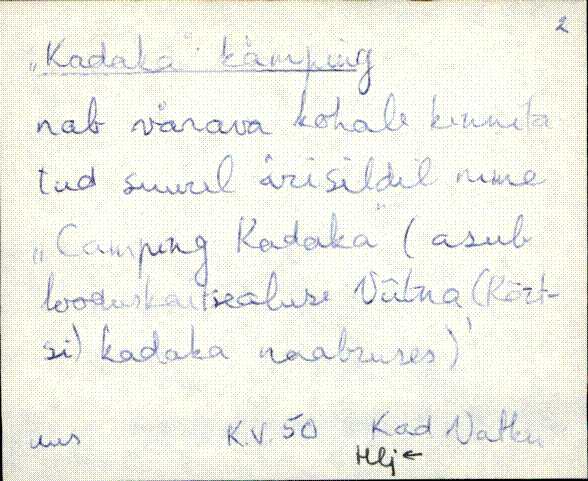 2
„Kadaka" kämping
nab värava kohale kinnita
tud suurel ärisildil nime
„Camping Kadaka" (asub
looduskaitsealuse Viitna (Kõrt-
si) kadaka naabruses)
uus K.V. 50 Kad Vatku
Hlj ←